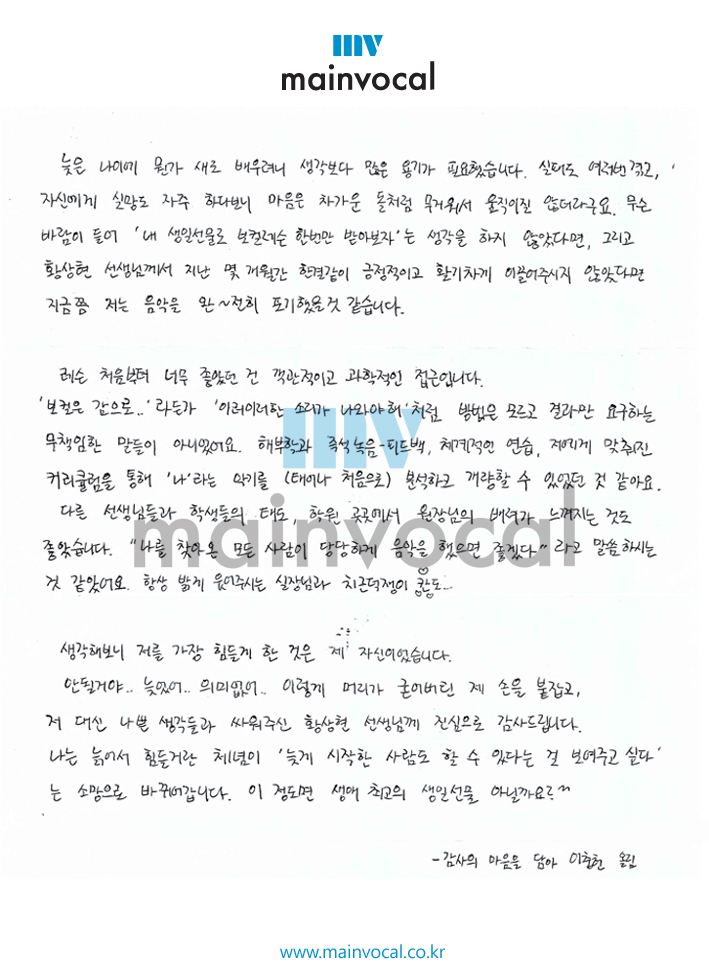 mv
mainvocal
늦은 나이에 뭔가 새로 배우려니 생각보다 많은 용기가 필요했습니다. 실패도 여러번 겪고,
자신에게 실망도 자주 하다보니 마음은 차가운 돌처럼 무거워서 움직이질 않더라구요. 무슨
바람이 들어 '내 생일선물로 보컬레슨 한번만 받아보자'는 생각을 하지 않았다면, 그리고
황상현 선생님께서 지난 몇 개월간 한결같이 긍정적이고 활기차게 이끌어주시지 않았다면
지금쯤 저는 음악을 완~전히 포기했을것 같습니다.
레슨 처음부터 너무 좋았던 건 객관적이고 과학적인 접근입니다.
'보컬은 감으로..' 라든가 '이러이러한 소리가 나와야해'처럼 방법은 모르고 결과만 요구하는
무책임한 말들이 아니었어요. 해부학과 즉석녹음-피드백, 체계적인 연습, 저에게 맞춰진
커리큘럼을 통해 '나'라는 악기를 (태어나 처음으로) 분석하고 개량할 수 있었던 것 같아요.
다른 선생님들과 학생들의 태도, 학원 곳곳에서 원장님의 배려가 느껴지는 것도
좋았습니다. "나를 찾아온 모든 사람이 당당하게 음악을 했으면 좋겠다" 라고 말씀하시는
것 같았어요. 항상 밝게 웃어주시는 실장님과 치근덕쟁이 도...
생각해보니 저를 가장 힘들게 한 것은 제 자신이었습니다.
안될거야.. 늦었어.. 의미없어.. 이렇게 머리가 굳어버린 제 손을 붙잡고,
저 대신 나쁜 생각들과 싸워주신 황상현 선생님께 진심으로 감사드립니다.
나는 늙어서 힘들거란 체념이 '늦게 시작한 사람도 할 수 있다는 걸 보여주고 싶다'
는 소망으로 바뀌어갑니다. 이 정도면 생애 최고의 생일선물 아닐까요?^^
- 감사의 마음을 담아 올림
mv
mainvocal
www.mainvocal.co.kr